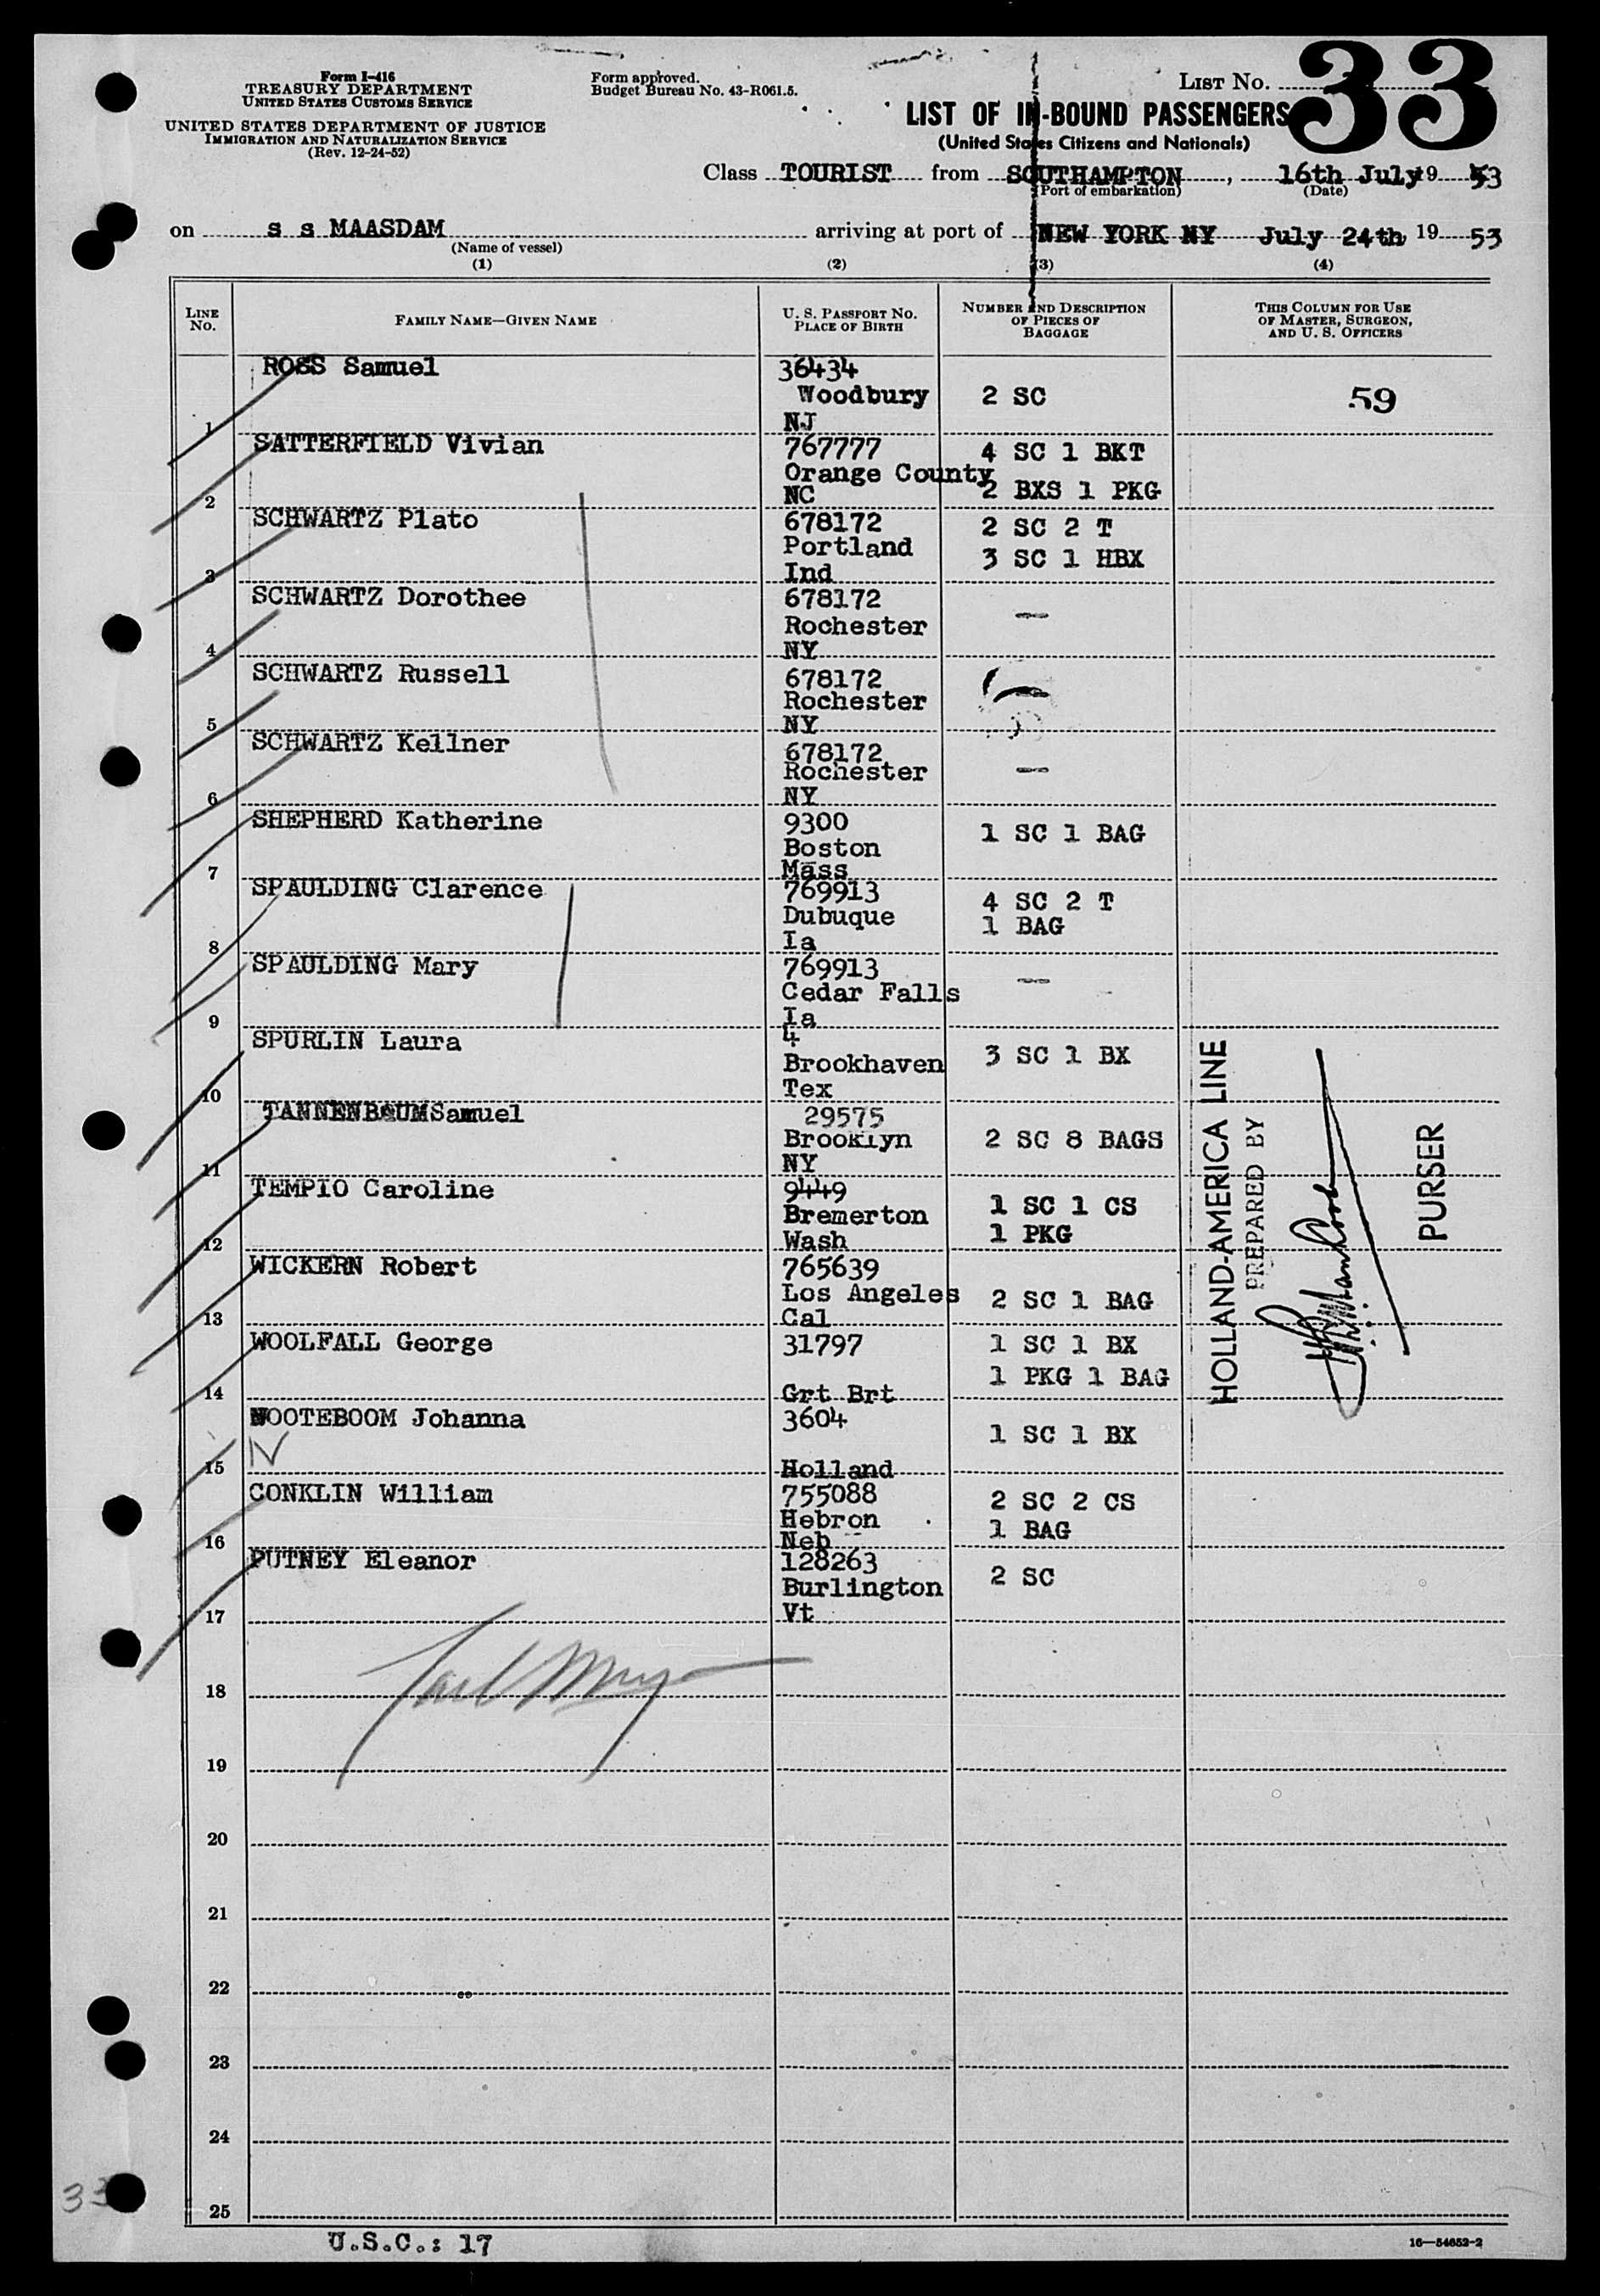 Form I-416
TREASURY DEPARTMENT
UNITED STATES CUSTOMS SERVICE
UNITED STATES DEPARTMENT OF JUSTICE
IMMIGRATION AND NATURALIZATION SERVICE
(Rev. 12-24-52)
Form approved.
Budget Bureau No. 43-R061.5.
LIST NO. 33
LIST OF IN-BOUND PASSENGERS
(United States Citizens and Nationals)
Class TOURIST from SOUTHAMPTON, 16th July 19 53
(Port of embarkation) (Date)
on s s MAASDAM arriving at port of NEW YORK NY July 24th 19 53
(Name of vessel)
(1) (2) (3) (4)
LINE NO. FAMILY NAME—GIVEN NAME U. S. PASSPORT NO. PLACE OF BIRTH NUMBER AND DESCRIPTION OF PIECES OF BAGGAGE THIS COLUMN FOR USE OF MASTER, SURGEON, AND U. S. OFFICERS
ROSS Samuel 36434
Woodbury 2 SC 59
1 NJ
SATTERFIELD Vivian 767777 4 SC 1 BKT
Orange County
2 NC 2 BXS 1 PKG
SCHWARTZ Plato 678172 2 SC 2 T
Portland 3 SC 1 HBX
3 Ind
SCHWARTZ Dorothee 678172
Rochester —
4 NY
SCHWARTZ Russell 678172
Rochester —
5 NY
SCHWARTZ Kellner 678172
Rochester —
6 NY
SHEPHERD Katherine 9300
Boston 1 SC 1 BAG
7 Mass
SPAULDING Clarence 769913 4 SC 2 T
Dubuque 1 BAG
8 Ia
SPAULDING Mary 769913 —
Cedar Falls
9 Ia
SPURLIN Laura 4
Brookhaven 3 SC 1 BX
10 Tex
TANNENBAUM Samuel 29575
Brooklyn 2 SC 8 BAGS
11 NY
TEMPIO Caroline 9449 1 SC 1 CS
Bremerton 1 PKG
12 Wash
WICKERN Robert 765639
Los Angeles 2 SC 1 BAG
13 Cal
WOOLFALL George 31797 1 SC 1 BX
1 PKG 1 BAG
14 Grt Brt
NOOTEBOOM Johanna 3604
N 1 SC 1 BX
15 Holland
CONKLIN William 755088 2 SC 2 CS
Hebron 1 BAG
16 Neb
PUTNEY Eleanor 128263
Burlington 2 SC
17 Vt
HOLLAND-AMERICA LINE
PREPARED BY
PURSER
18
19
20
21
22
23
24
25
33
U.S.C.: 17
16—54652-2